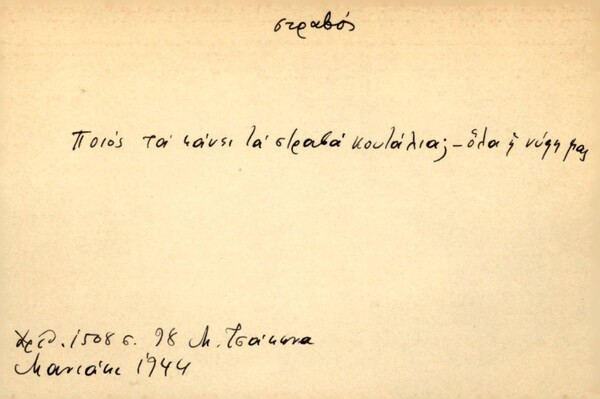 στραβός
Ποιός τά κάνει τά στραβά κουτάλια; – ὅλα ἡ νύφη μας
Χρφ. 1508 σ. 98 Μ. Τσάκωνα
Μανιάκι 1944